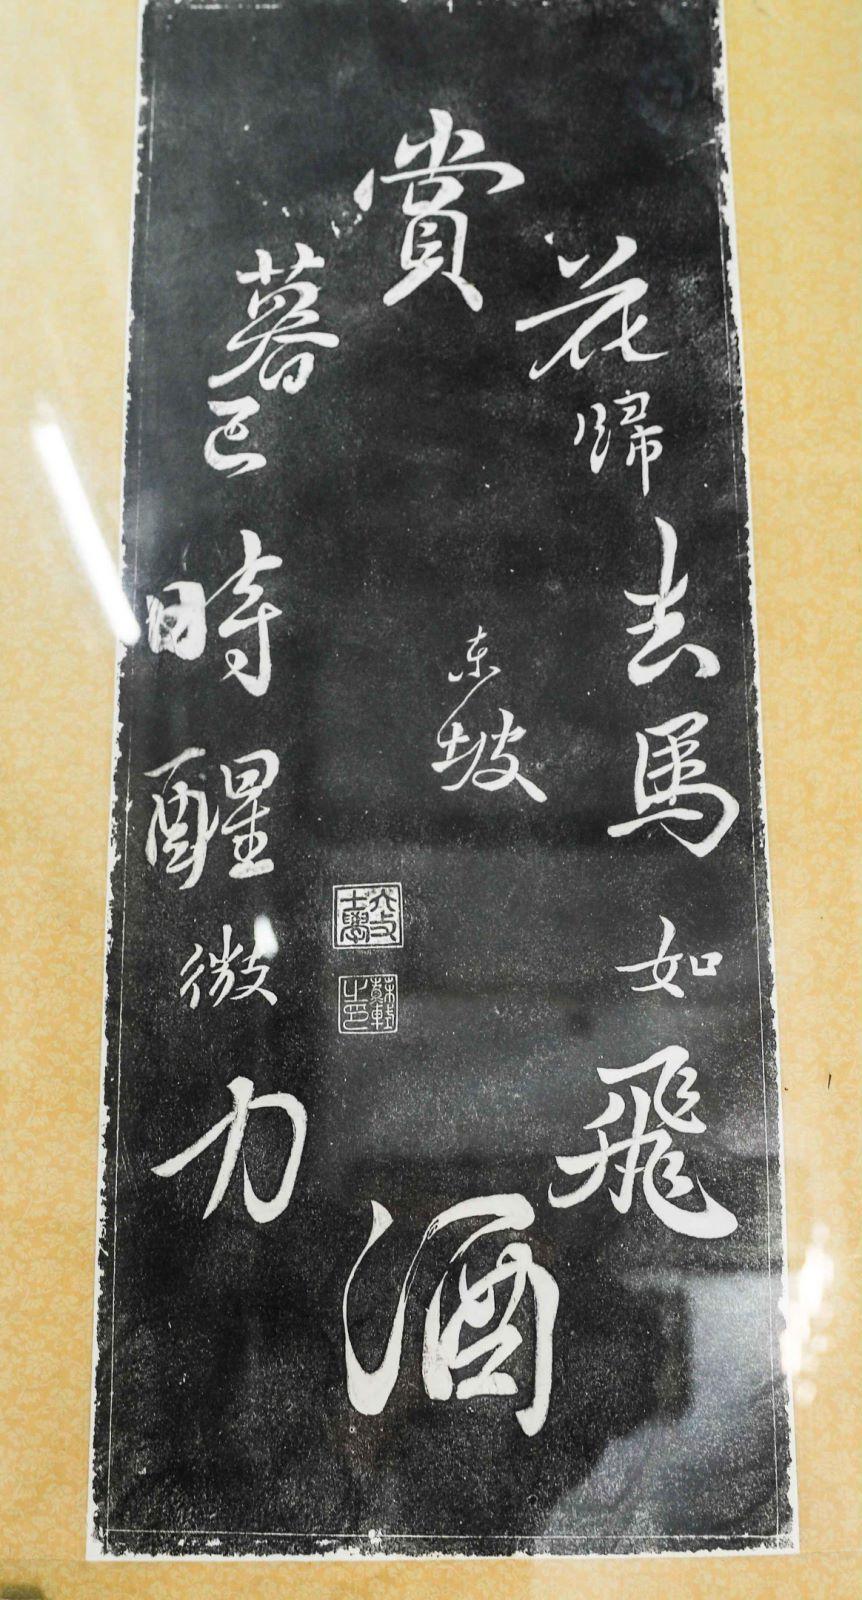 賞花歸去馬如飛
酒力微醒時已暮
東坡